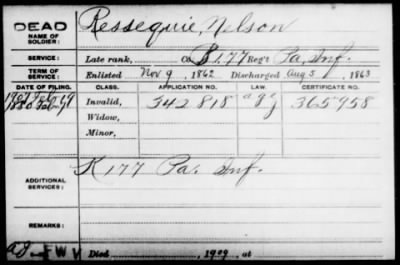 DEAD
NAME OF SOLDIER: Ressequie, Nelson
SERVICE: Late rank, Co. B, 177 Reg't Pa, Inf.
TERM OF SERVICE: Enlisted Nov 9, 1862 Discharged Aug 5, 1863
DATE OF FILING. CLASS. APPLICATION NO. LAW. CERTIFICATE NO.
1880 Feb 59 Invalid, 342818 365958
Widow,
Minor,
ADDITIONAL SERVICES: K 177 Pa. Inf.
REMARKS:
W V Died 1909, at